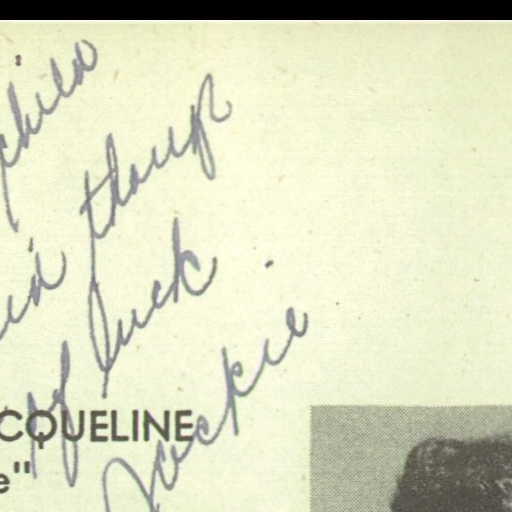 child
thoug
of luck
Jackie
CQUELINE
e"